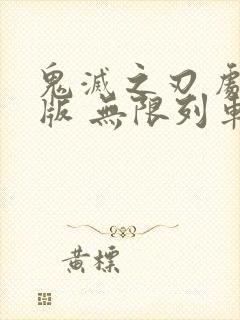 鬼滅之刃 劇
版 無限列車
黄標